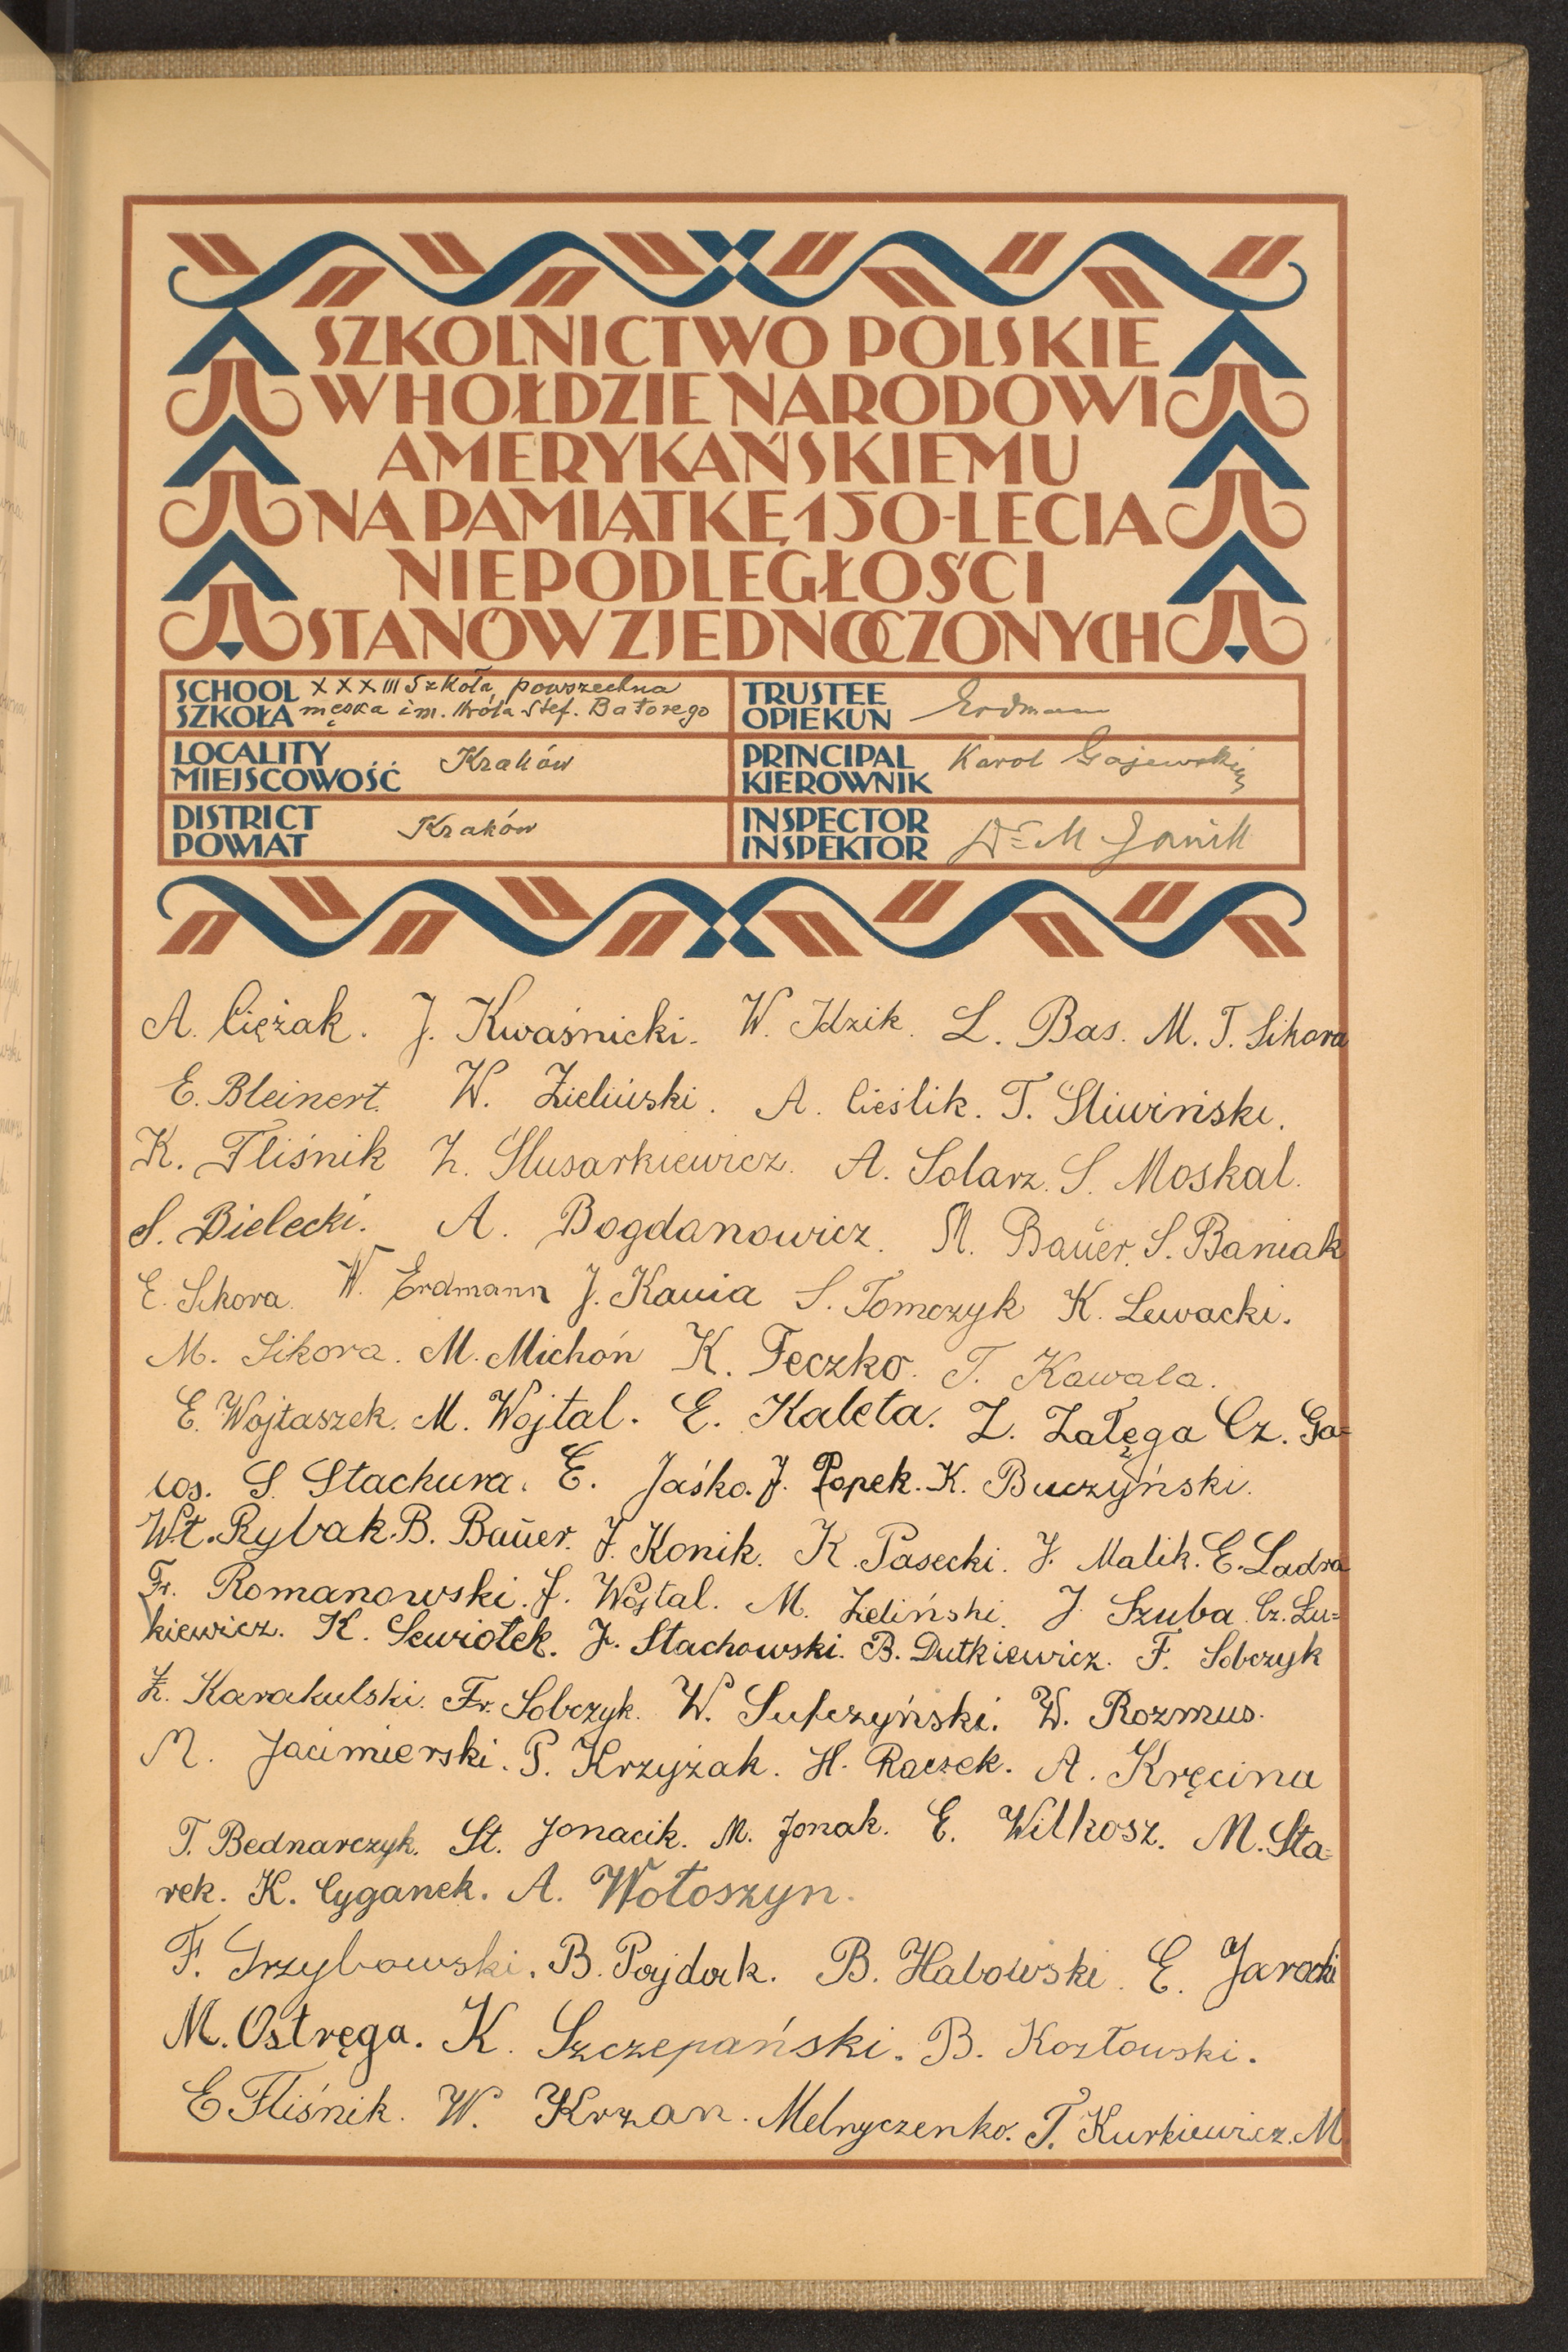 SZKOLNICTWO POLSKIE
W HOŁDZIE NARODOWI
AMERYKAŃSKIEMU
NA PAMIĄTKĘ 150-LECIA
NIEPODLEGŁOŚCI
STANÓW ZJEDNOCZONYCH
SCHOOL XXXIII Szkoła powszechna
SZKOŁA męska im. Króla Stef. Batorego
TRUSTEE
OPIEKUN Erdmann
LOCALITY
MIEJSCOWOŚĆ Kraków
PRINCIPAL
KIEROWNIK Karol Gajewski
DISTRICT
POWIAT Kraków
INSPECTOR
INSPEKTOR Dr M Janik
A. Ciężak. J. Kwaśnicki. W. Idzik. L. Bas. M. T. Sikora
E. Bleinert. W. Zieliński. A. Cieślik. T. Śliwiński.
K. Fliśnik Z. Ślusarkiewicz. A. Solarz. S. Moskal.
S. Bielecki. A. Bogdanowicz. M. Baŭer. S. Baniak
E. Sikora. W. Erdmann J. Kania S. Tomczyk K. Lewacki.
M. Sikora. M. Michoń K. Feczko. T. Kawala.
E. Wojtaszek. M. Wojtal. E. Kaleta. Z. Załęga Cz. Ga=
cos. S. Stachura. E. Jaśko. J. Popek. K. Buczyński.
Wł. Rybak. B. Baŭer. J. Konik. K. Pasecki. J. Malik. E. Ladra
Fr. Romanowski. J. Wojtal. M. Zeliński. J. Szuba. Cz. Lu=
kiewicz. K. Sewiołek. J. Stachowski. B. Dutkiewicz. F. Sobczyk
Z. Karakulski. Fr. Sobczyk. W. Sułczyński. W. Rozmus.
M. Jacimierski. P. Krzyżak. H. Raczek. A. Kręcina
T. Bednarczyk. St. Jonacik. M. Jonak. E. Wilkosz. M. Sta=
rek. K. Cyganek. A. Wołoszyn.
F. Grzybowski. B. Pajdak. B. Habowski. E. Jarocki
M. Ostręga. K. Szczepański. B. Kozłowski.
E Fliśnik. W. Krzan. Melnyczenko. T. Kurkiewicz. M.